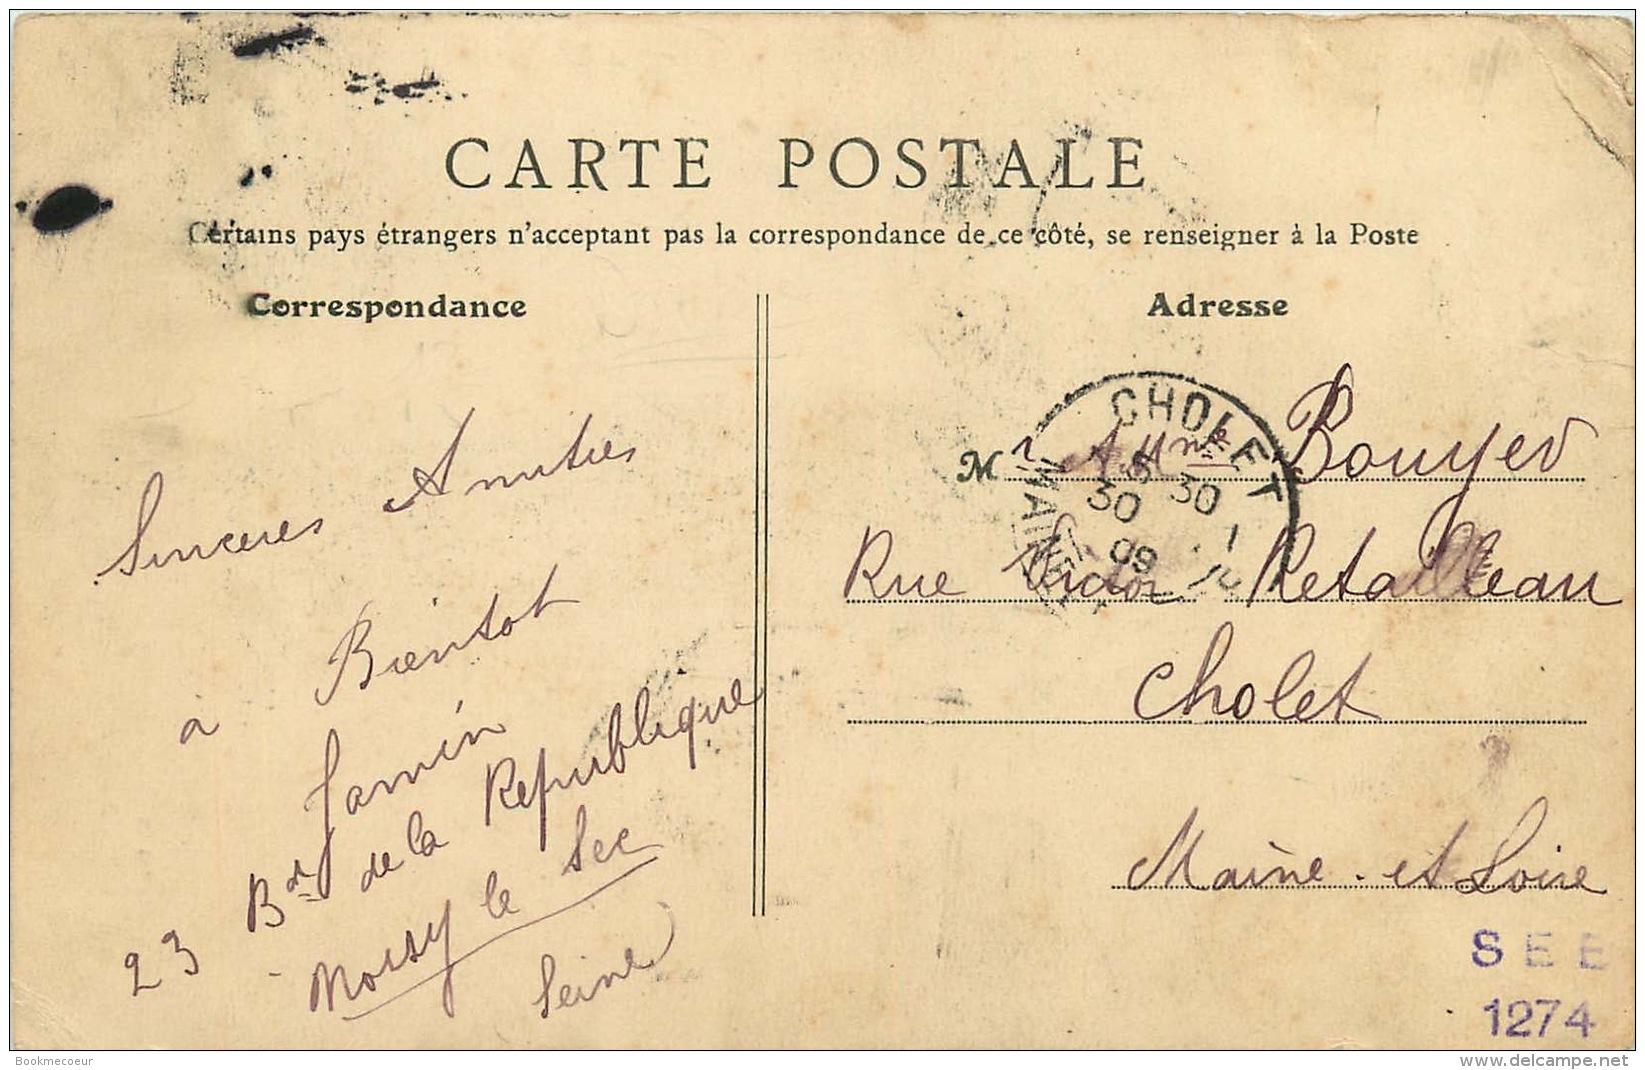 CARTE POSTALE
Certains pays étrangers n'acceptant pas la correspondance de ce côté, se renseigner à la Poste
Correspondance
Sincères Amitiés
à Bientôt
Jamin
23 Bd de la République
Noisy le Sec
Seine
Adresse
CHOLET
MAINE
30
30
09
M Mme Bouyer
Rue Victor Retailleau
Cholet
Maine-et Loire
SEE
1274
Bookmecoeur
delcampe.net